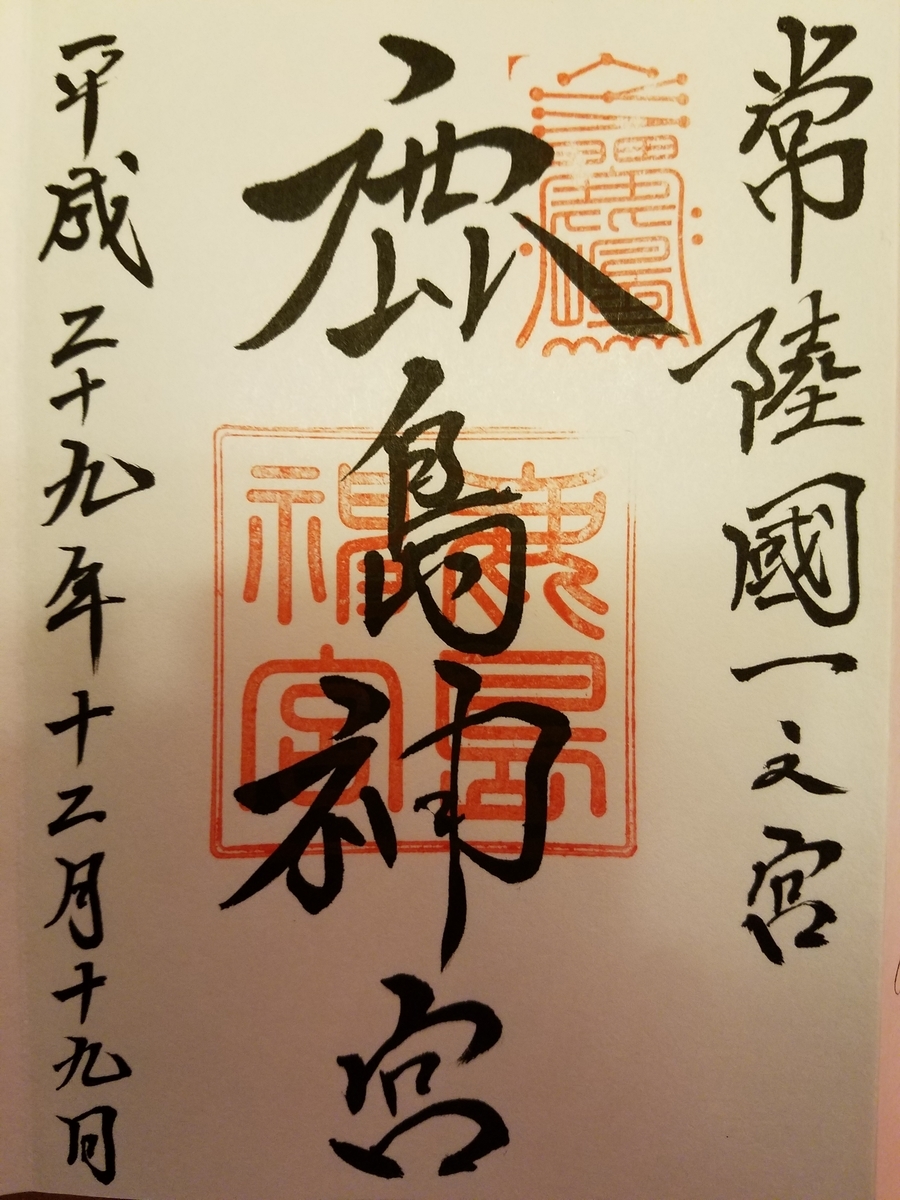 常陸國一之宮
鹿島神宮
鹿島
神宮
平成二十九年十二月十九日